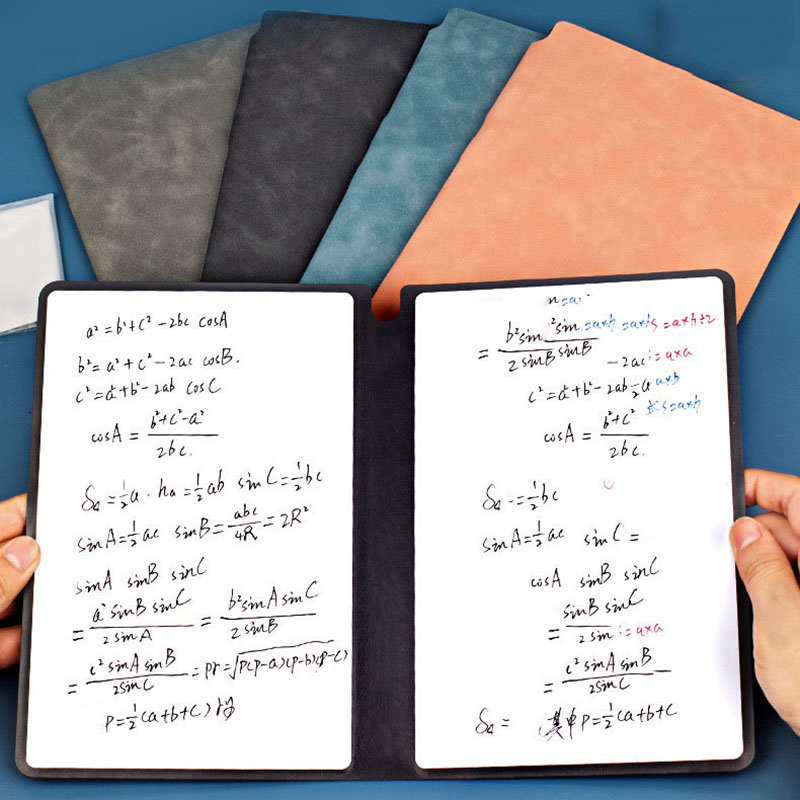 a² = b² + c² - 2bc cosA
b² = a² + c² - 2ac cosB.
c² = a² + b² - 2ab cosC
cosA = (b² + c² - a²) / 2bc.
S△ = ½a · ha = ½ab sinC = ½bc
sinA = ½ac sinB = abc/4R = 2R²
sinA sinB sinC
= a² sinB sinC / 2sinA = b² sinA sinC / 2sinB
= c² sinA sinB / 2sinC = pr = √p(p-a)(p-b)(p-c)
P = ½(a+b+c)
= b² sin² sin / 2sinB sinB =a×h =a×h s=a×h÷2
-2ac =a×a
c² = a² + b² - 2ab a×b
cosA = b² + c² / 2bc. s=a×h
S△ = ½bc
sinA = ½ac sinC =
cosA sinB sinC
= sinB sinC / 2sin =a×a
= c² sinA sinB / 2sinC
S△ = 其中P=½(a+b+c